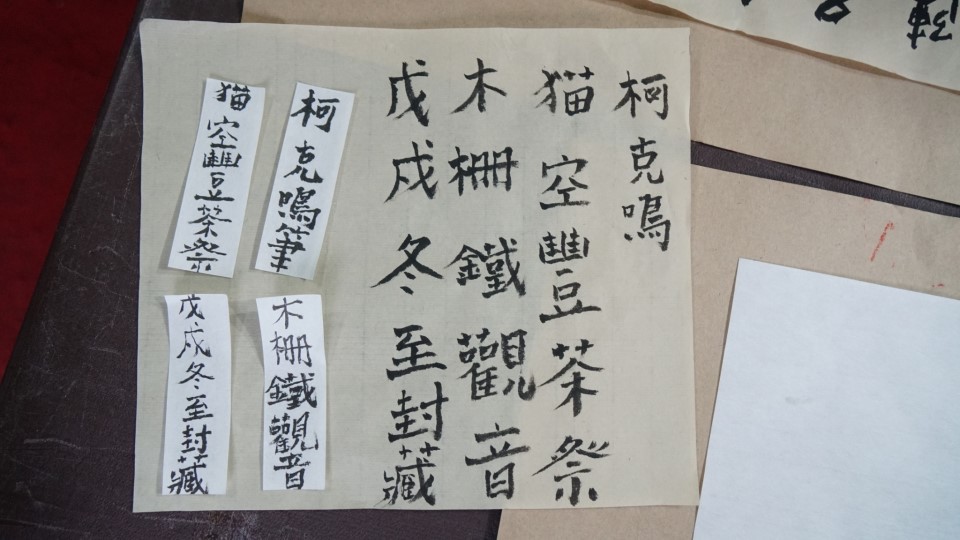 柯克鳴
猫空豐茶祭
木柵鐵觀音
戊戌冬至封藏
柯克鳴筆
猫空豐茶祭
木柵鐵觀音
戊戌冬至封藏